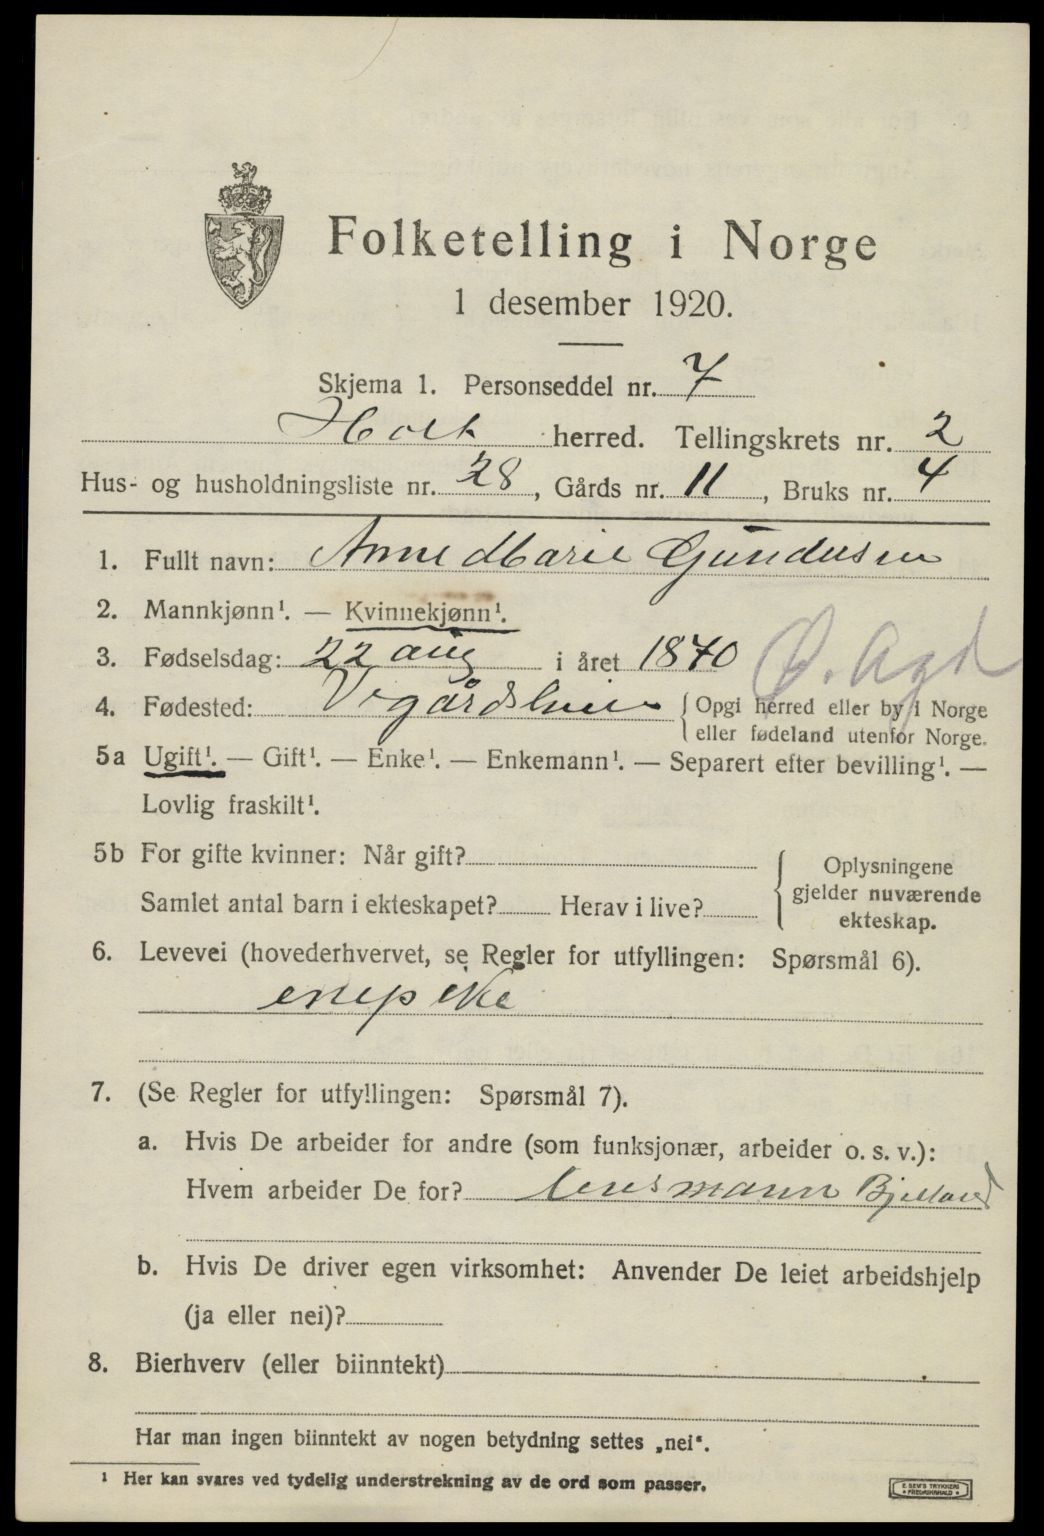 Folketelling i Norge
1 desember 1920.
Skjema 1. Personseddel nr. 7
Holt herred. Tellingskrets nr. 2
Hus- og husholdningsliste nr. 28, Gårds nr. 11, Bruks nr. 4
1. Fullt navn: Anne Marie Gundersen
2. Mannkjønn¹. — Kvinnekjønn¹.
3. Fødselsdag: 22 aug i året 1870
Ø. Agd
4. Fødested: Vegårdsheien {Opgi herred eller by i Norge
eller fødeland utenfor Norge.
5a Ugift¹. — Gift¹. — Enke¹. — Enkemann¹. — Separert efter bevilling¹. —
Lovlig fraskilt¹.
5b For gifte kvinner: Når gift?
Samlet antal barn i ekteskapet? Herav i live?
{Oplysningene
gjelder nuværende
ekteskap.
6. Levevei (hovederhvervet, se Regler for utfyllingen: Spørsmål 6).
7. (Se Regler for utfyllingen: Spørsmål 7).
a. Hvis De arbeider for andre (som funksjonær, arbeider o. s. v.):
Hvem arbeider De for? lensmann Bjelland
b. Hvis De driver egen virksomhet: Anvender De leiet arbeidshjelp
(ja eller nei)?
8. Bierhverv (eller biinntekt)
Har man ingen biinntekt av nogen betydning settes „nei“.
¹ Her kan svares ved tydelig understrekning av de ord som passer.
E. SEM'S TRYKKERI
• FREDRIKSHALD •